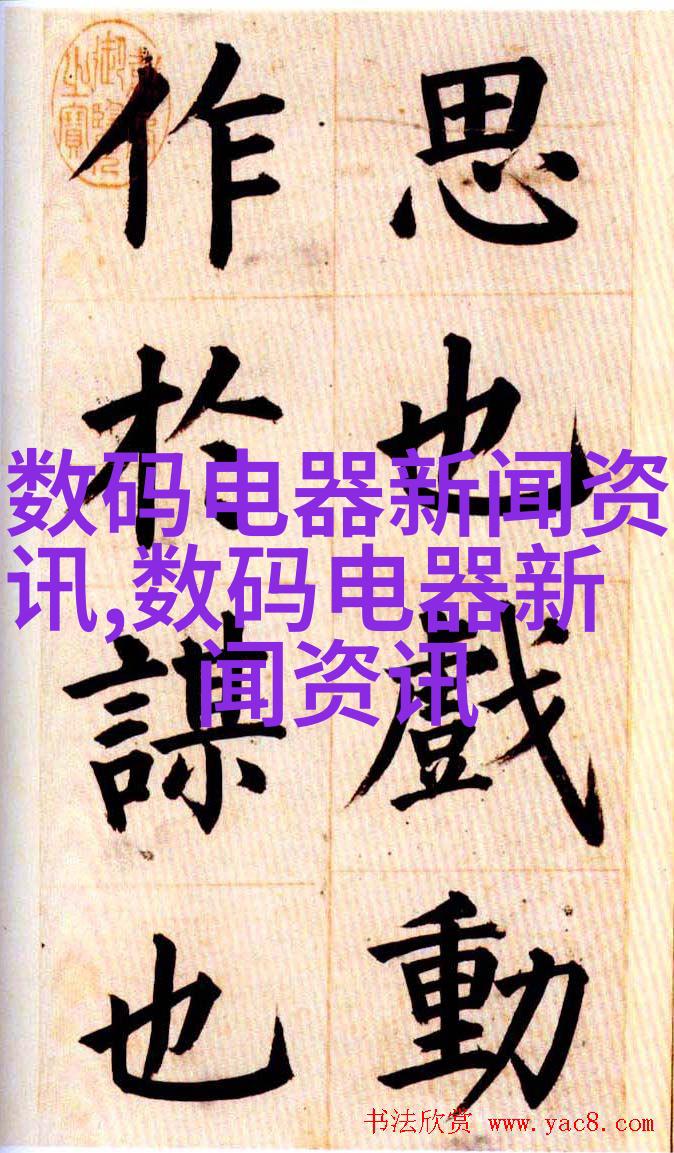 思也戲動
作於謀也
数码电器新闻资
讯,数码电器新
闻资讯
书法欣赏 www.yac8.com